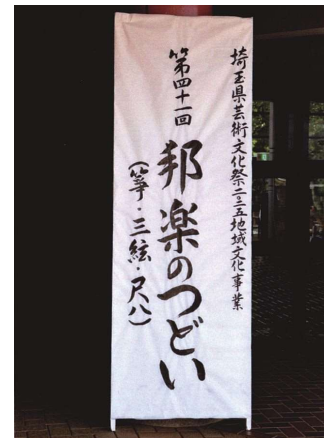 埼玉県芸術文化祭二〇二五地域文化事業
第四十一回
邦楽のつどい
(箏・三絃・尺八)